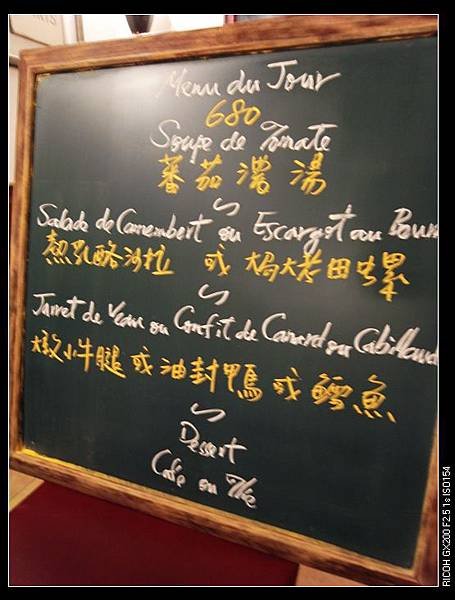 Menu du Jour
680
Soupe de Tomate
蕃茄濃湯
Salade de Camembert ou Escargot au Bour
熱乳酪沙拉 或 焗烤田螺
Jarret de Veau ou Confit de Canard ou Cabillaud
燉小牛腿 或 油封鴨 或 鱈魚
Dessert
Café ou Thé
RICOH GX200 F2.5 1s ISO154